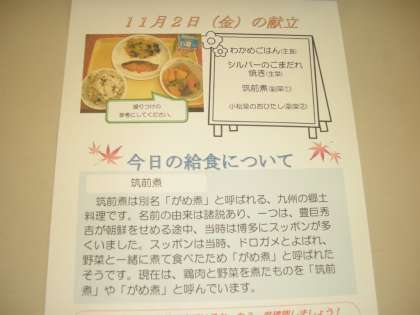 11月2日（金）の献立
わかめごはん(主食)
シルバーのごまだれ
焼き(主菜)
筑前煮(副菜①)
小松菜のおひたし(副菜②)
盛りつけの
参考にしてください。
今日の給食について
筑前煮
筑前煮は別名「がめ煮」と呼ばれる、九州の郷土
料理です。名前の由来は諸説あり、一つは、豊臣秀
吉が朝鮮をせめる途中、当時は博多にスッポンが多
くいました。スッポンは当時、ドロガメとよばれ、
野菜と一緒に煮て食べたため「がめ煮」と呼ばれた
そうです。現在は、鶏肉と野菜を煮たものを「筑前
煮」や「がめ煮」と呼んでいます。